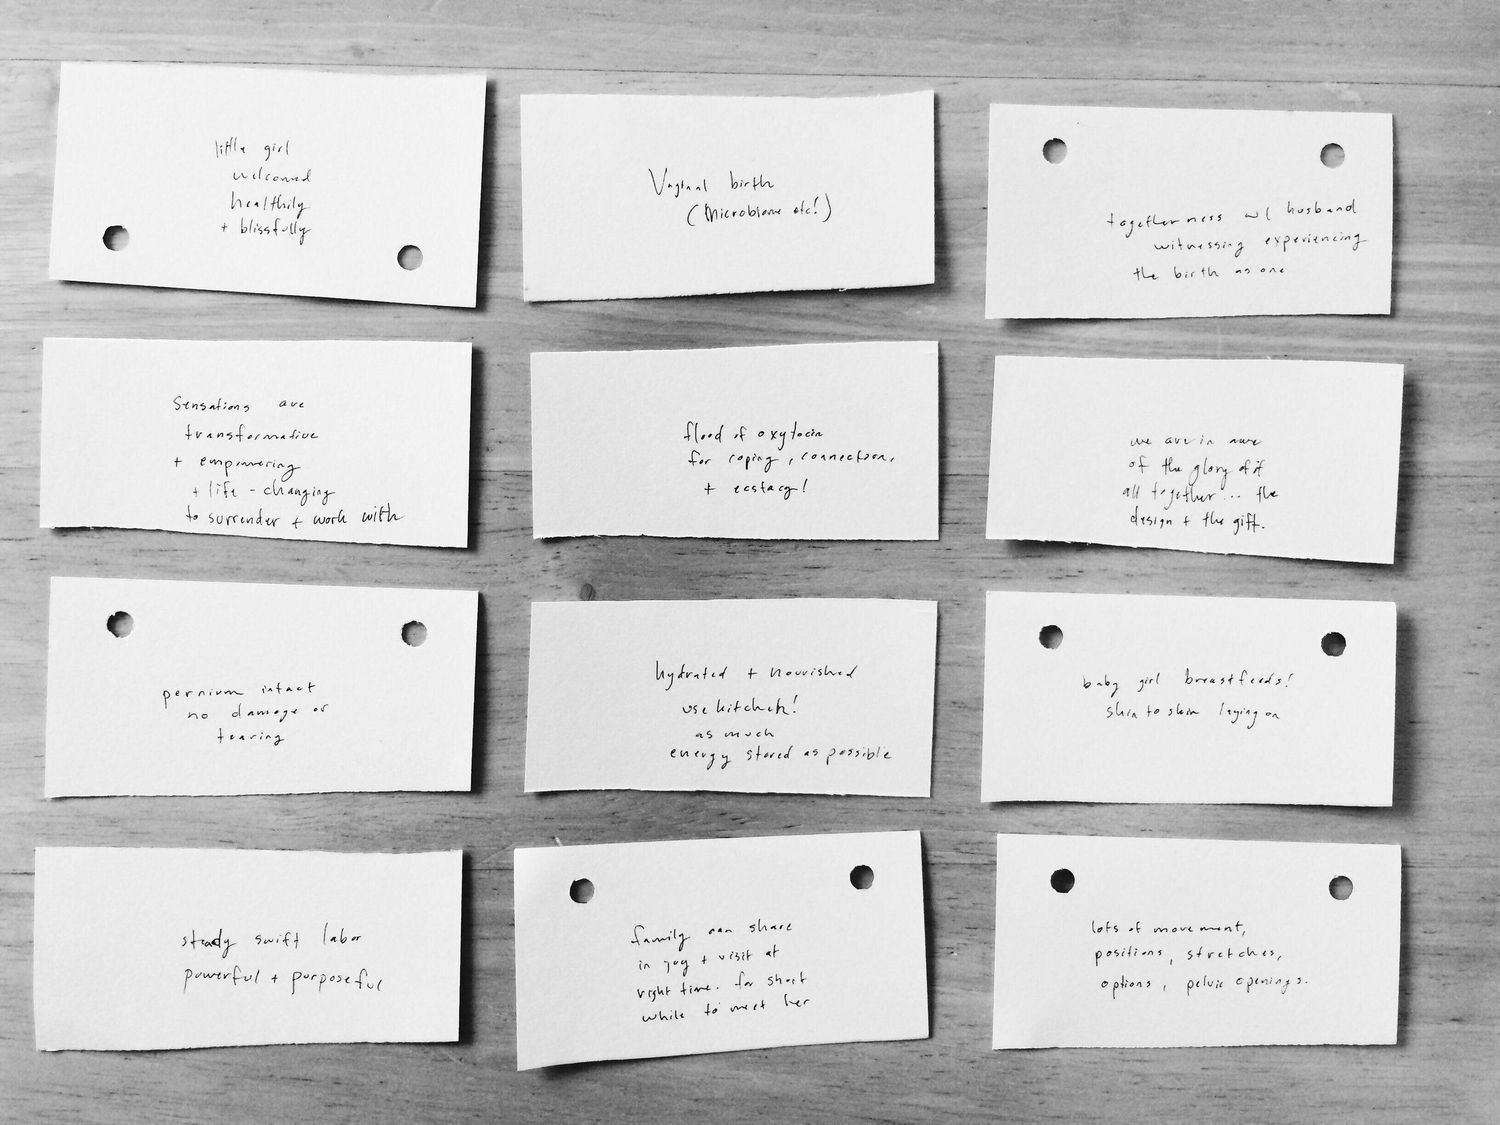 little girl
welcomed
healthily
+ blissfully
Vaginal birth
(Microbiome etc!)
togetherness w/ husband
witnessing experiencing
the birth as one
Sensations are
transformative
+ empowering
+ life-changing
to surrender + work with
flood of oxytocin
for coping, connection,
+ ecstacy!
we are in awe
of the glory of it
all together... the
design + the gift.
pernium intact
no damage or
tearing
hydrated + nourished
use kitchen!
as much
energy stored as possible
baby girl breastfeeds!
skin to skin laying on
steady swift labor
powerful + purposeful
family can share
in joy + visit at
right time. for short
while to meet her
lots of movement,
positions, stretches,
options, pelvic openings.